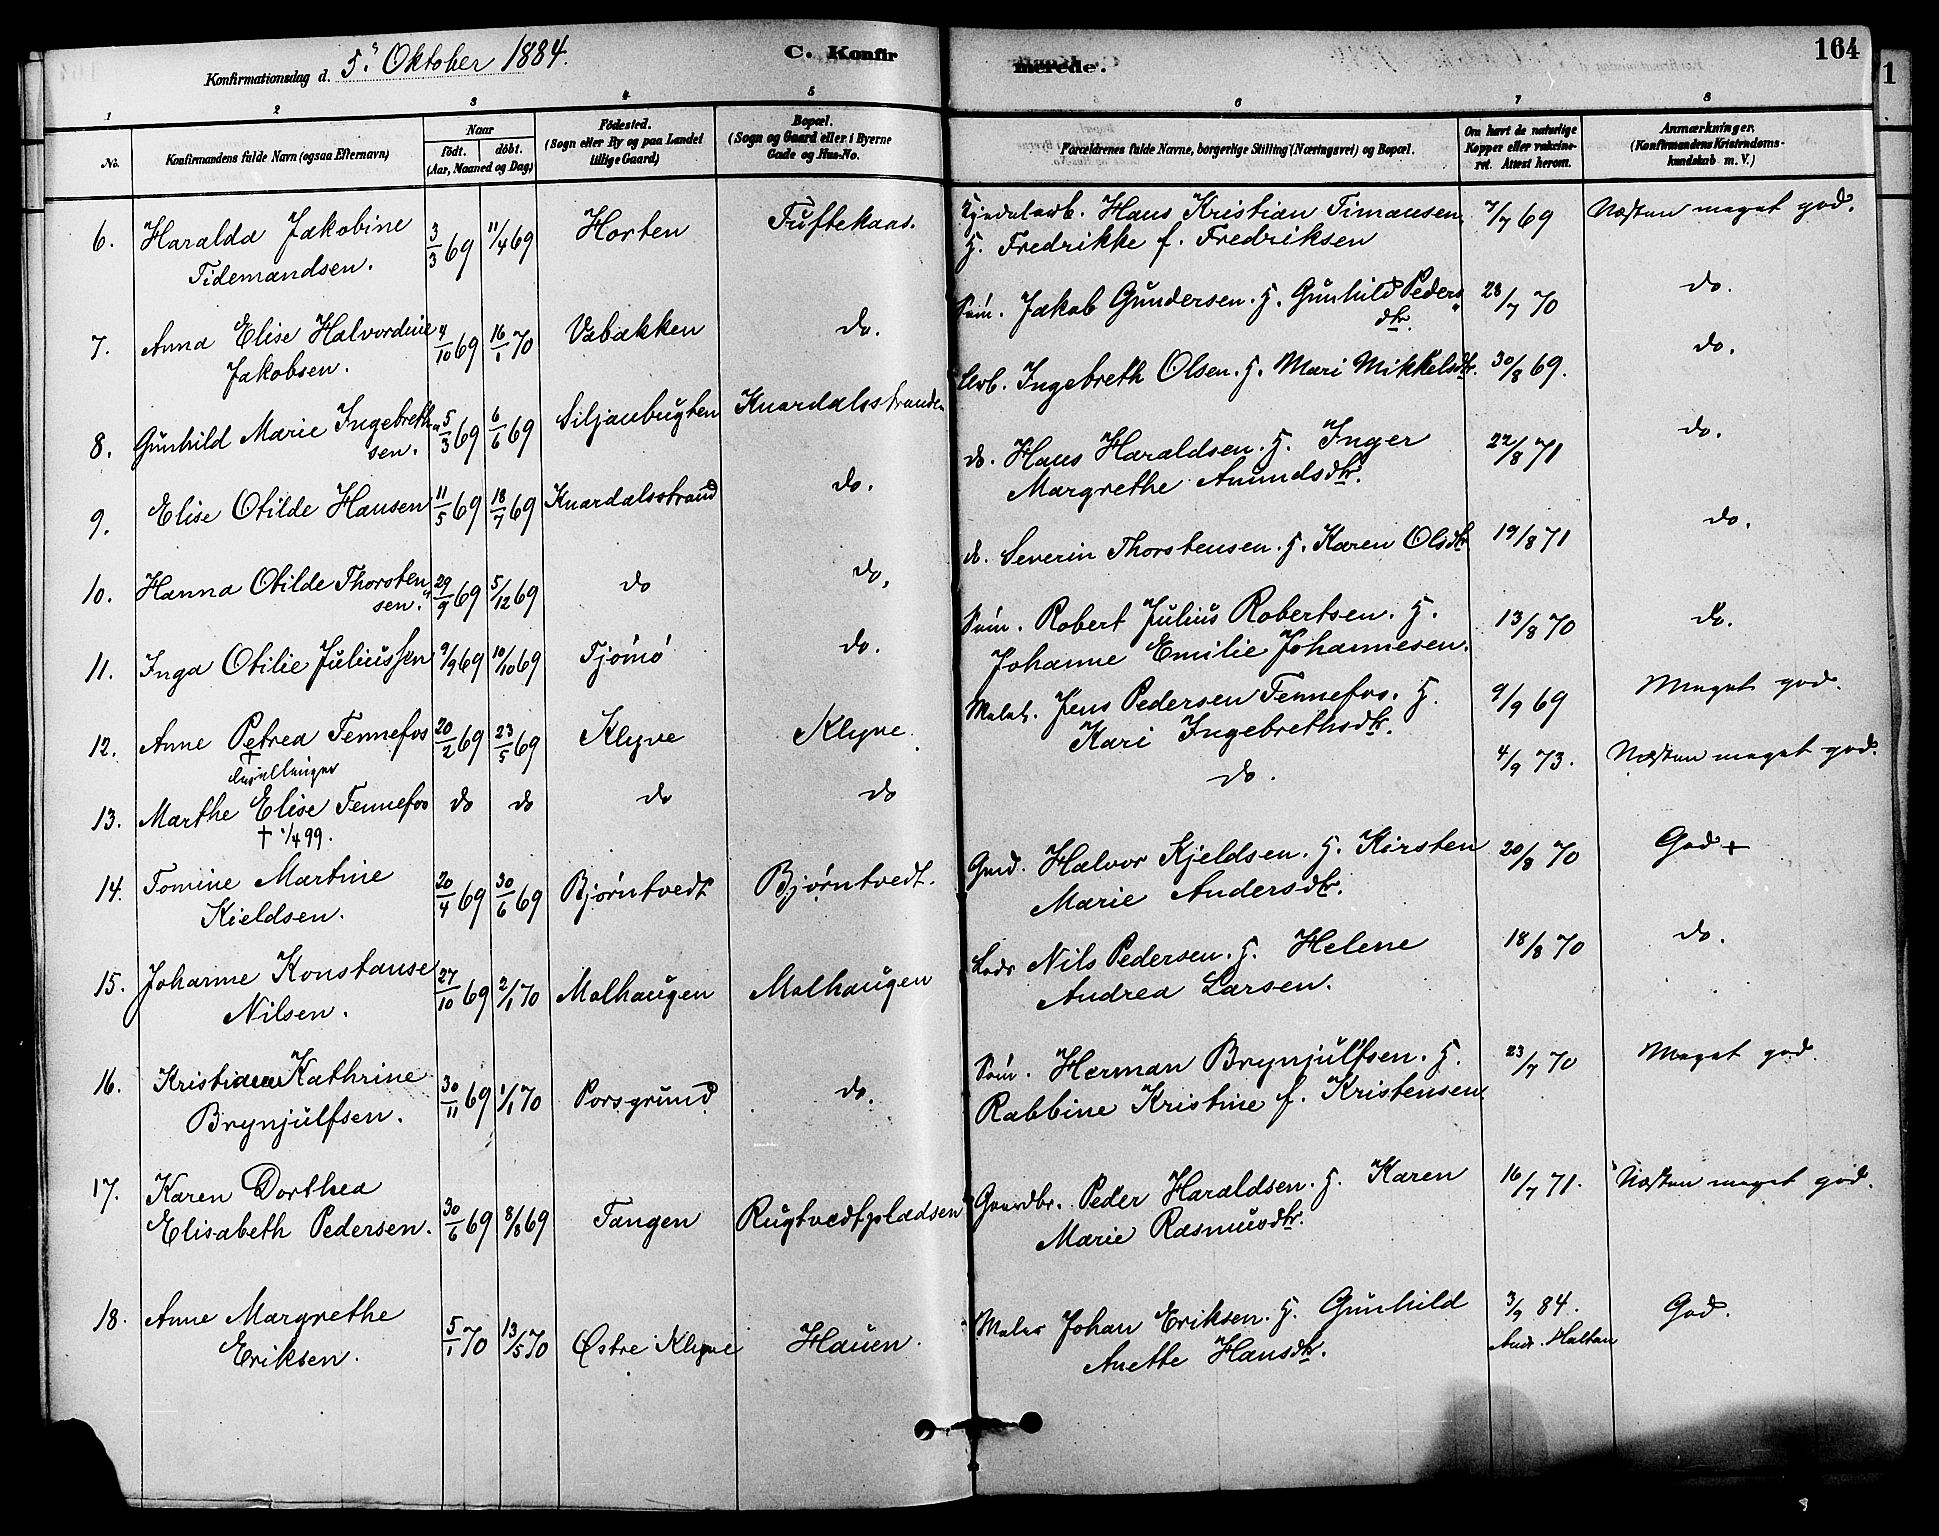 Konfirmationsdag d. 5. Oktober 1884.
C. Konfirmerede.
164
1 2 3 4 5 6 7 8
No.
Konfirmandens fulde Navn (ogsaa Efternavn)
Naar
født. døbt.
(Aar, Maaned og Dag)
Fødested.
(Sogn eller By og paa Landet
tillige Gaard)
Bopæl.
(Sogn og Gaard eller i Byerne
Gade og Hus-No.
Forældrenes fulde Navne, borgerlige Stilling (Næringsvei) og Bopæl.
Om havt de naturlige
Kopper eller vakcine-
ret. Attest herom.
Anmærkninger.
(Konfirmandens Kristendoms-
kundskab m. V.)
6. Haralda Jakobine 3/3 69 11/4 69 Horten Tuftekaas. Hans Kristian Timansen, 7/7 69 Næsten meget god.
Tidemandsen. H. Fredrikke f. Fredriksen
7. Anna Elise Halvordine 4/10 69 16/1 70 Vabakken do. Søm. Jakob Gundersen. H. Gunhild Peders 28/7 70 do.
Jakobsen. dtr.
8. Gunhild Marie Ingebreth 5/3 69 6/6 69 Siljanbugten Knardalsstranden Arb. Ingebreth Olsen. H. Mari Mikkelsdtr. 30/8 69. do.
sen.
9. Elise Otilde Hansen 11/5 69 18/7 69 Knardalsstrand do. do. Hans Haraldsen. H. Inger 22/8 71 do.
Margrethe Amundsdtr.
10. Hanna Otilde Thorsten 29/9 69 5/12 69 do do. do. Severin Thorstensen. H. Karen Olsdtr 19/8 71 do.
sen.
11. Inga Otilie Juliussen 9/9 69 10/10 69 Tjømø do. Søm. Robert Julius Robertsen. H. 13/8 70 do.
Johanne Emilie Johannesen.
12. Anne Petrea Fennefos 20/2 69 23/5 69 Klyve Klyve. Jens Pedersen Fennefos. H. 9/9 69 Meget god.
+ Tvillinger Kari Ingebrethsdtr.
13. Marthe Elise Fennefos do do do do do. 4/9 73. Næsten meget god.
† 1/4 99.
14. Tomine Martine 20/4 69 30/6 69 Bjørntvedt Bjørntvedt. Gmd. Halvor Kjeldsen. H. Kirsten 20/8 70 God +
Kieldsen. Marie Andersdtr.
15. Johanne Konstanse 27/10 69 2/1 70 Molhaugen Molhaugen Lods Nils Pedersen. H. Helene 18/8 70 do.
Nilsen. Andrea Larsen.
16. Kathrine 30/11 69 1/1 70 Porsgrund do. Søm. Herman Brynjulfsen. H. 23/7 70 Meget god.
Brynjulfsen. Rabbine Kristine f. Kristensen
17. Karen Dorthea 30/6 69 8/8 69 Tangen Rugtvedtpladsen Gaardbr. Peder Haraldsen. H. Karen 16/7 71. Næsten meget god.
Elisabeth Pedersen. Marie Rasmusdtr.
18. Anne Margrethe 5/1 70 13/5 70 Østre Klyve Hauen. Johan Eriksen. H. Gunhild 3/9 84. God.
Eriksen. Anette Hansdtr. Andr. Holtan